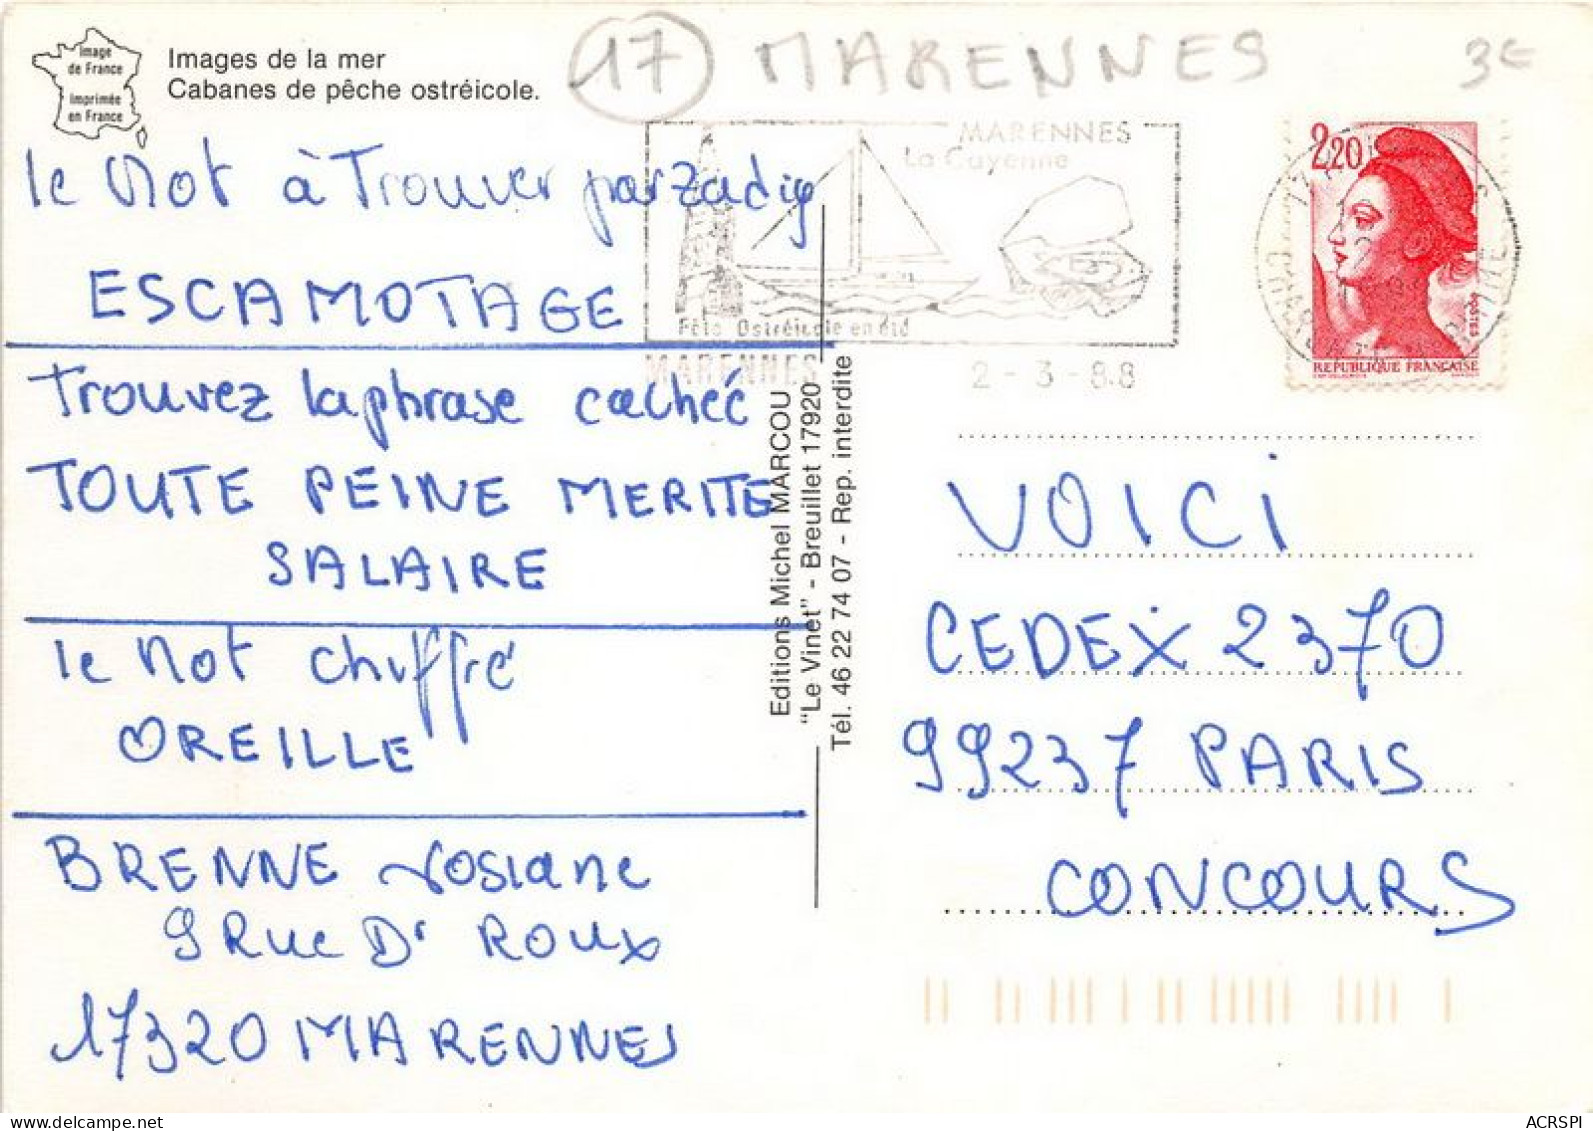 Image
de France
Imprimée
en France
Images de la mer
Cabanes de pêche ostréicole.
17 MARENNES
3€
MARENNES
La Cayenne
Fête Ostréicole en été
MARENNES
2-3-88
2,20
POSTES
REPUBLIQUE FRANÇAISE
le Mot à Trouver par Zadig
ESCAMOTAGE
Trouvez la phrase cachée
TOUTE PEINE MERITE
SALAIRE
le Mot chiffré
OREILLE
BRENNE Josiane
9 Rue Dr Roux
17320 MARENNES
Editions Michel MARCOU
"Le Vinet" - Breuillet 17920
Tél. 46 22 74 07 - Rep. interdite
VOICI
CEDEX 2370
99237 PARIS
CONCOURS
ACRSPI